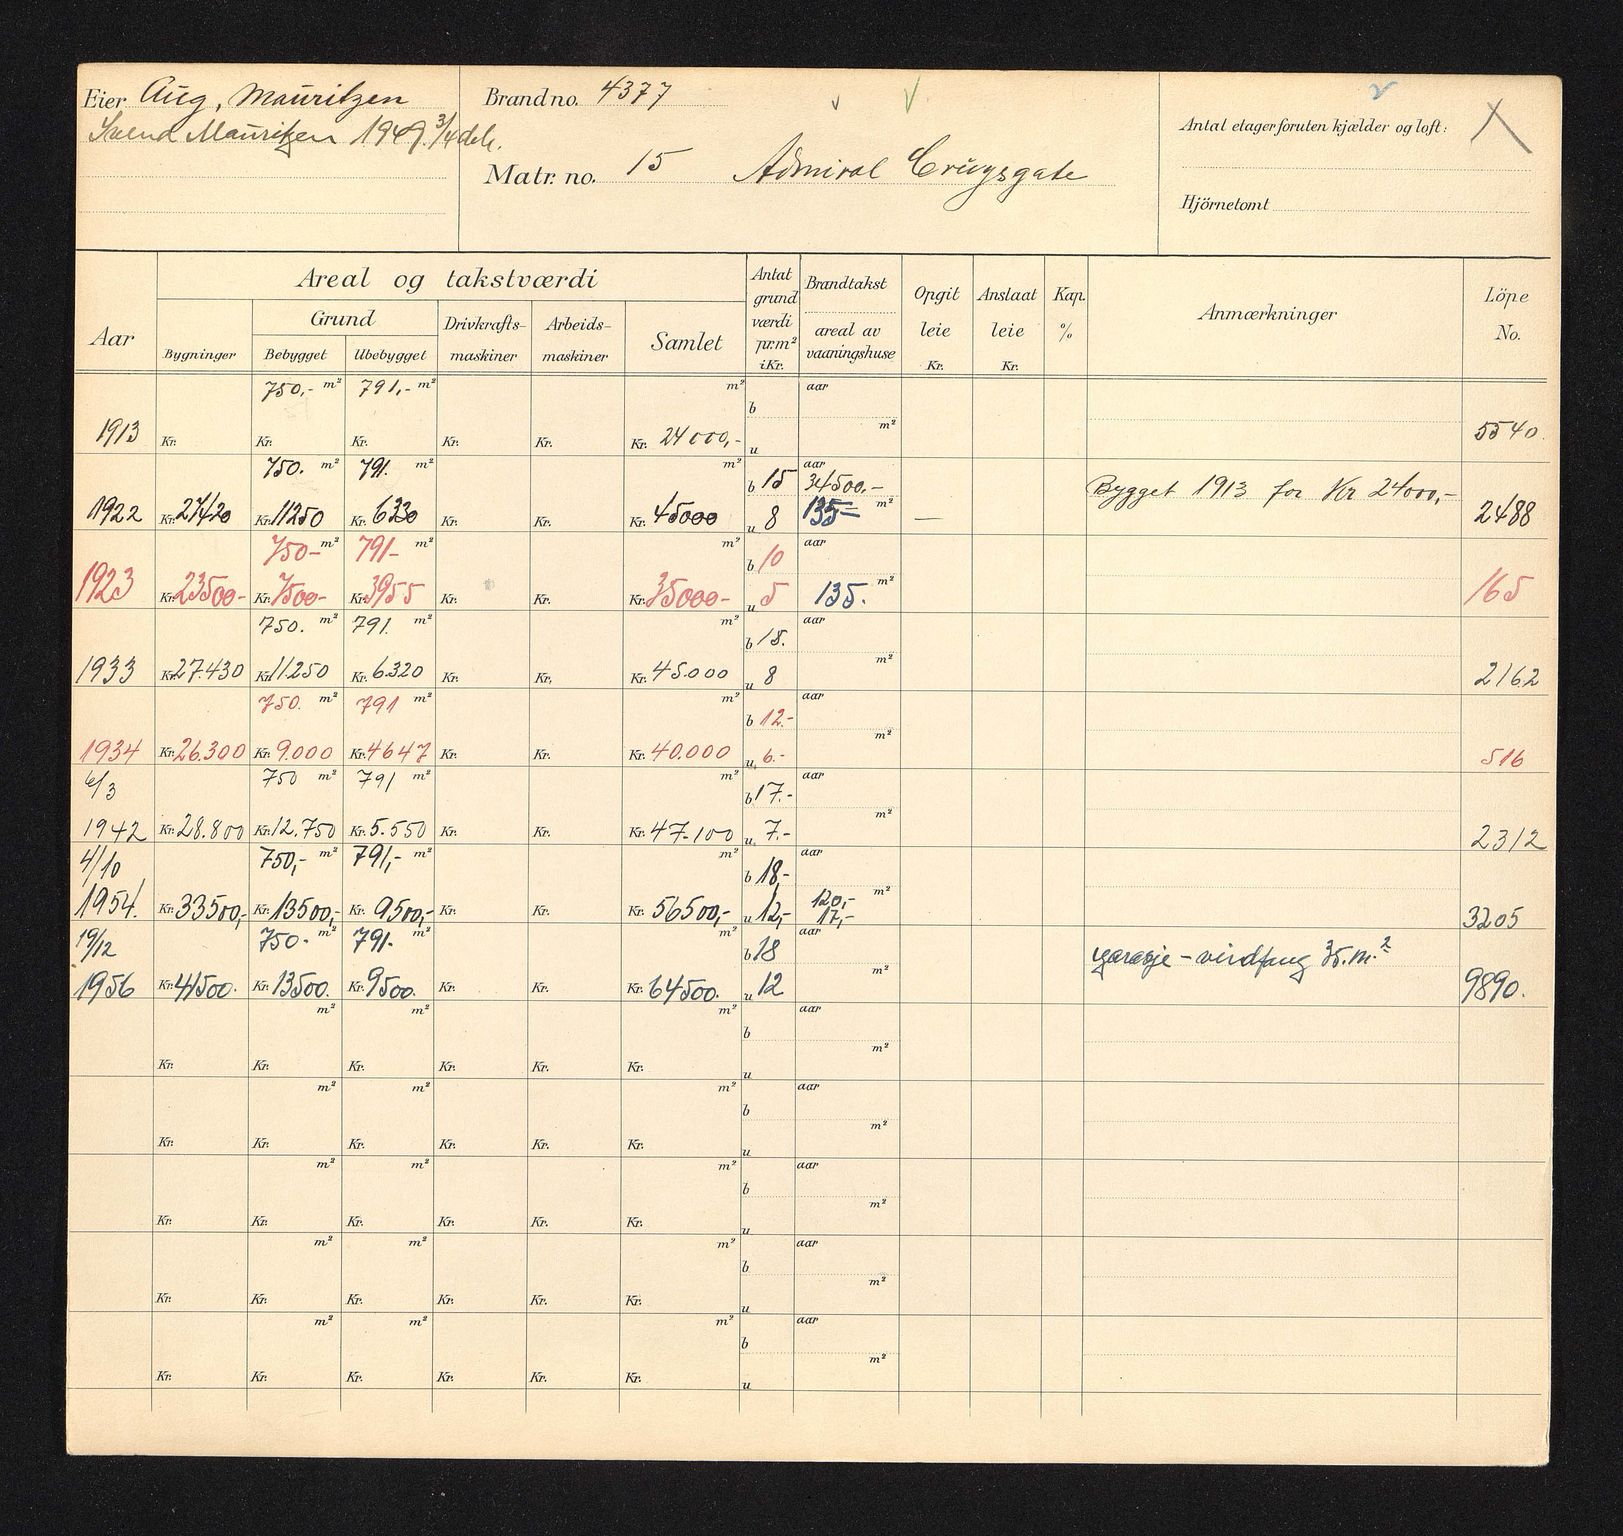 Eier Aug, Mauritzen
Svend Mauritzen 1949. 3/4 dele.
Brand no. 4377
Matr. no. 15 Admiral Cruysgate
Antal etager foruten kjælder og loft:
Hjörnetomt
Aar
Areal og takstværdi
Grund
Bygninger
Bebygget
Ubebygget
Drivkrafts-maskiner
Arbeids-maskiner
Samlet
Antat grund værdi pr. m² i Kr.
Brandtakst
areal av vaaningshuse
Opgit leie Kr.
Anslaat leie Kr.
Kap. %
Anmærkninger
Löpe No.
750,- m² 791,- m² m² aar
b
m²
1913 Kr. Kr. Kr. Kr. Kr. Kr. 24000,- u 5540.
750. m² 791. m² m² b 15 aar 34500,-
Bygget 1913 for Kr 24000,-
1922 Kr. 27420 Kr. 11250 Kr. 6330 Kr. Kr. Kr. 45000 u 8 135= m² — 2488
750- m² 791- m² m² b 10 aar
1923 Kr. 23500- Kr. 7500- Kr. 3955 Kr. Kr. Kr. 35000- u 5 135. m² 165
750. m² 791. m² m² b 15. aar
1933 Kr. 27.430 Kr. 11.250 Kr. 6.320 Kr. Kr. Kr. 45.000 u 8 m² 2162
750. m² 791 m² m² b 12.- aar
1934 Kr. 26.300 Kr. 9.000 Kr. 4647 Kr. Kr. Kr. 40.000 u 6.- m² 516
6/3 750 m² 791 m² m² b 17.- aar
1942 Kr. 28.800 Kr. 12.750 Kr. 5.550 Kr. Kr. Kr. 47.100 u 7.- m² 2312
4/10 750,- m² 791,- m² m² b 18,- aar
1954. Kr. 33500,- Kr. 13500,- Kr. 9500,- Kr. Kr. Kr. 56500,- u 12,- 120,- 17,- m² 3205
19/12 750- m² 791- m² m² b 18 aar
garasje - vindfang 35. m.²
1956 Kr. 41500. Kr. 13500. Kr. 9500. Kr. Kr. Kr. 64500. u 12 m² 9890.
m² m² m² aar
b
m²
Kr. Kr. Kr. Kr. Kr. Kr. u
m² m² m² aar
b
m²
Kr. Kr. Kr. Kr. Kr. Kr. u
m² m² m² aar
b
m²
Kr. Kr. Kr. Kr. Kr. Kr. u
m² m² m² aar
b
m²
Kr. Kr. Kr. Kr. Kr. Kr. u
m² m² m² aar
b
m²
Kr. Kr. Kr. Kr. Kr. Kr. u